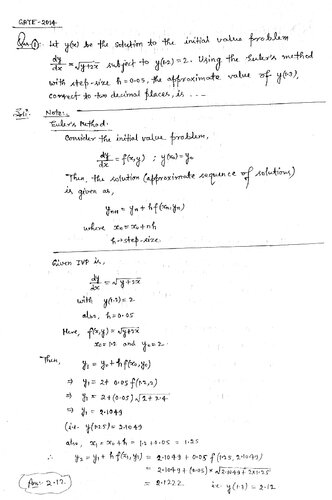 GATE-2014
Ques.(1): Let y(x) be the solution to the initial value problem
dy/dx = √y+2x subject to y(1.2)=2. Using the Euler's method
with step-size h=0.05, the approximate value of y(1.3),
correct to two decimal places, is ...
Sol: Note:
Euler's Method:
Consider the initial value problem,
dy/dx = f(x,y) ; y(x₀)=y₀
Then, the solution (approximate sequence of solutions)
is given as,
yₙ₊₁ = yₙ + hf(xₙ,yₙ)
where xₙ=x₀+nh
h→step-size.
Given IVP is,
dy/dx = √y+2x
with y(1.2)=2
also, h=0.05
Here, f(x,y)=√y+2x
x₀=1.2 and y₀=2.
Then,
y₁ = y₀+hf(x₀,y₀)
⇒ y₁ = 2+ 0.05 f(1.2,2)
⇒ y₁ = 2+(0.05)√2+2.4
⇒ y₁ = 2.1049
(i.e. y(1.25)=2.1049)
also, x₁=x₀+h=1.2+0.05=1.25
∴ y₂=y₁+hf(x₁,y₁) = 2.1049+0.05 f(1.25,2.1049)
= 2.1049+(0.05)×√2.1049+2×1.25
= 2.1222 i.e. y(1.3)=2.12
Ans: 2.12.